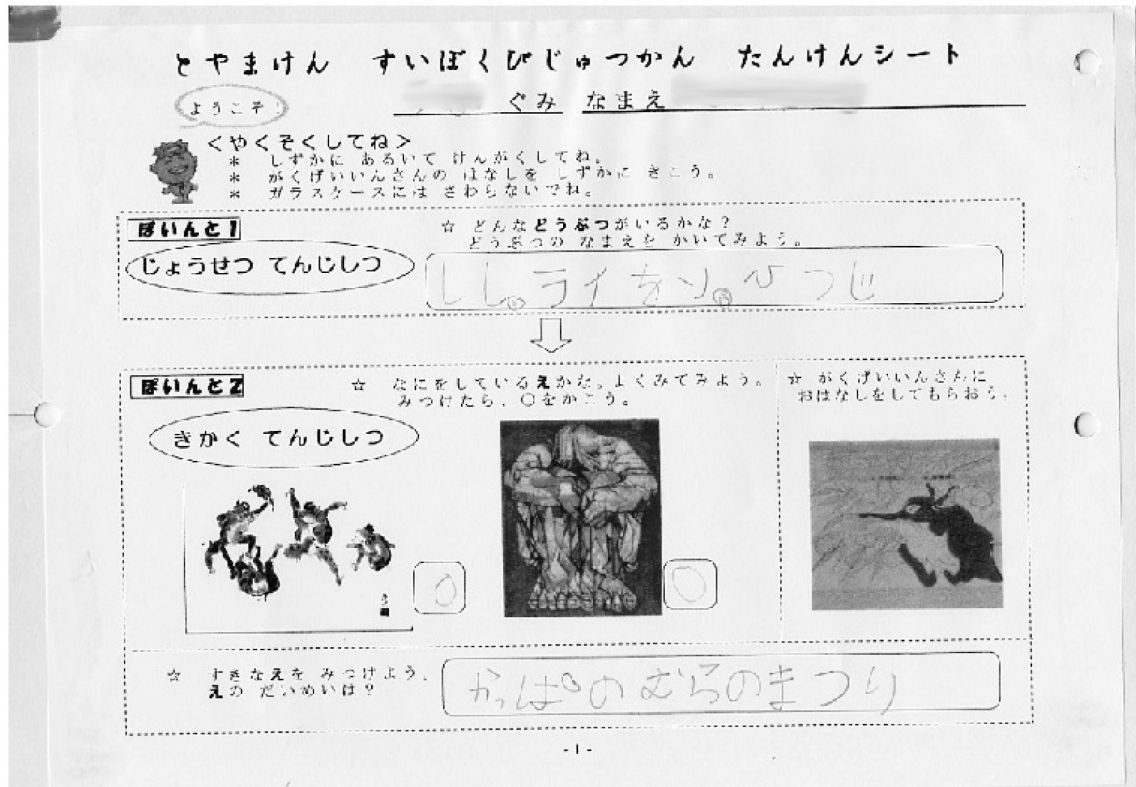 とやまけん すいぼくびじゅつかん たんけんシート
ようこそ
ぐみ なまえ
<やくそくしてね>
* しずかに あるいて けんがくしてね。
* がくげいいんさんの はなしを しずかに きこう。
* ガラスケースには さわらないでね。
ぽいんと1
じょうせつ てんじしつ
☆ どんなどうぶつがいるかな?
どうぶつの なまえを かいてみよう。
しし。ライオン。ひつじ
ぽいんと2
きかく てんじしつ
☆ なにをしているえかな。よくみてみよう。
みつけたら、○をかこう。
☆ がくげいいんさんに、
おはなしをしてもらおう。
☆ すきなえを みつけよう。
えの だいめいは?
かっぱのむらのまつり
-1-